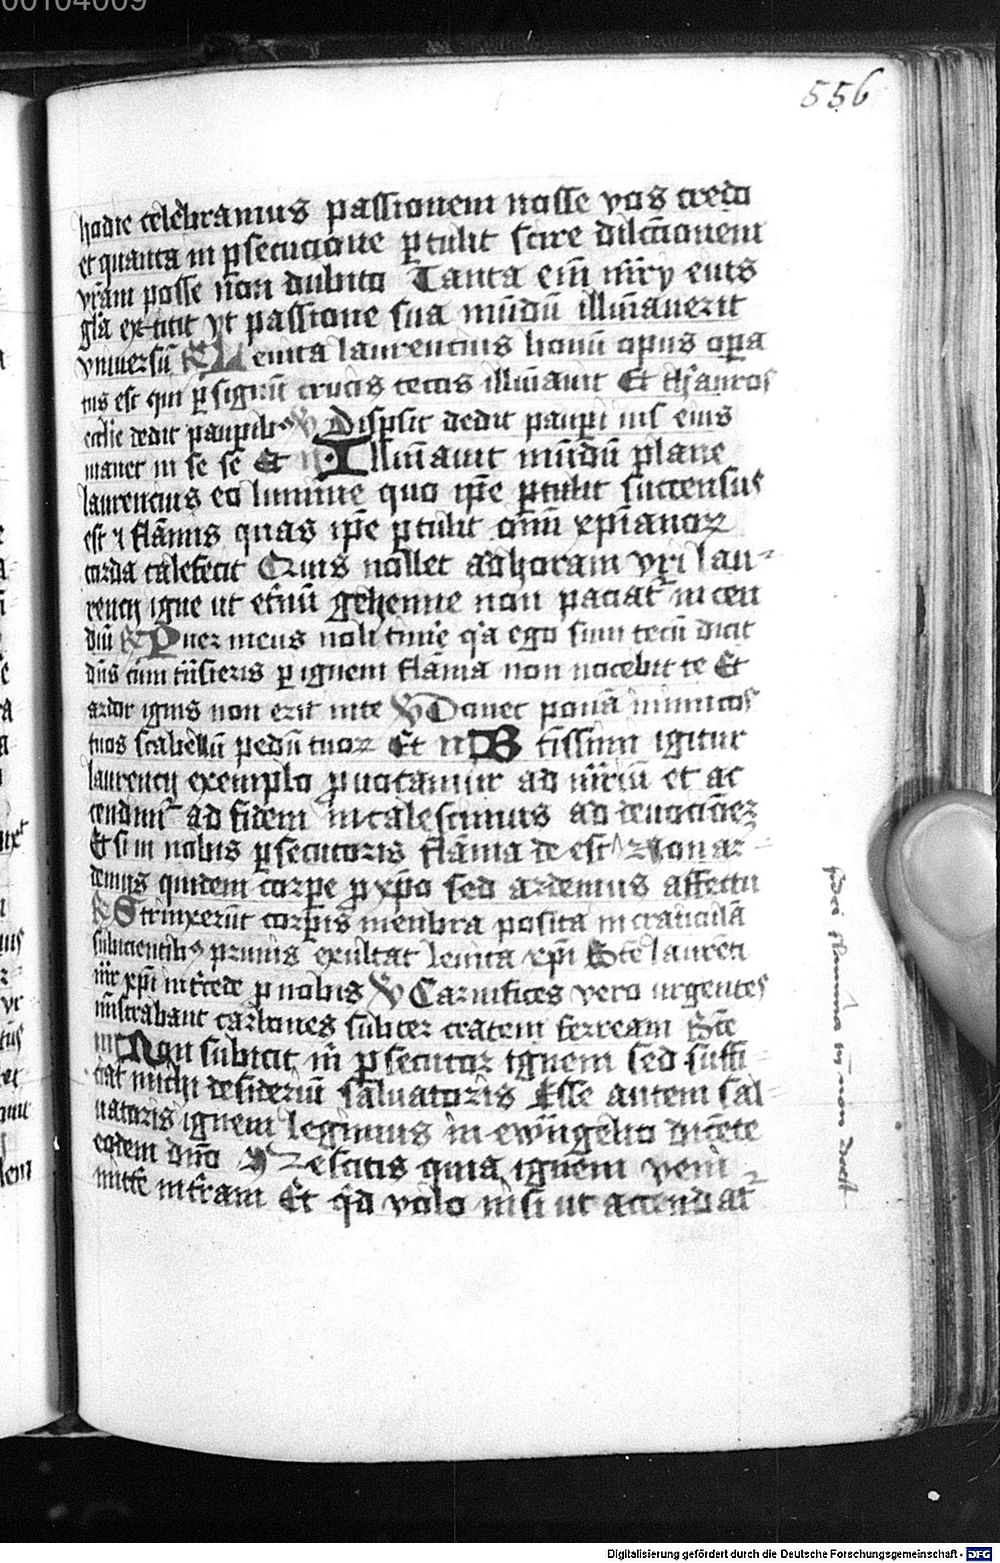 00104009
556
hodie celebramus passionem nosse vos credo
et quanta in ꝑsecucione ꝑtulit scire dilcc̄ionem
vr̄am posse nōn dubito Tanta em̄ mr̄y eius
gl̄a extitit vt passione sua mūdū illūīaverit
vniuersū R Leuita laurencius bonū opus oꝑa
tus est qui ꝑ signū crucis cecos illūīauit Et thesauros
eccl̄ie dedit pauꝑibꝰ V Disꝑsit dedit pauꝑi ius eius
manet in se se Et n Illūīauit mūdū plane
laurencius eo lumine quo ip̄e ꝑtulit succensus
est ⁊ flāmis quas ip̄e ꝑtulit om̄ū xp̄ianoꝝ
corda calefecit Cuius nollet ad horam vri lau-
rency igne ut et̄nū gehenne non paciat᷑ incen
diū R Puer meus noli time᷑ q̄a ego sum tecū dicit
dn̄s cum tūsieris ꝑ ignem flāma non nocebit te Et
ardor ignis non erit in te V Donec ponā inimicos
tuos scabellū pedū tuoꝝ Et n B tissimi igitur
laurency exemplo ꝓuocamur ad mr̄iū et ac
cendim᷑ ad fidem incalescimus ad deuocōēꝫ
Et si in nobis ꝑsecutoris flāma de est Non ar-
demus quidem corꝑe ꝓ xp̄o sed ardemus affectu
R Strinxerūt corꝑis menbra posita in craticulā
subicientibꝰ prunis exultat leuita xp̄i Bt̄e laurēti
mr̄ xp̄i int̄cede ꝓ nobis V Carnifices vero urgentes
mīstrabant carbones subter cratem ferream Bt̄e
m Non subicit m̄ ꝑsecutor ignem sed suffi-
ciat michi desideriū saluatoris Esse autem sal-
uatoris ignem legimus in ewāgelio dicēte
eodem dn̄o Nescitis quia ignem veni
mitte᷑ in t̄ram Et qd̄ volo nisi ut accendat᷑
fidei flamma tn̄ non deest
Digitalisierung gefördert durch die Deutsche Forschungsgemeinschaft - DFG